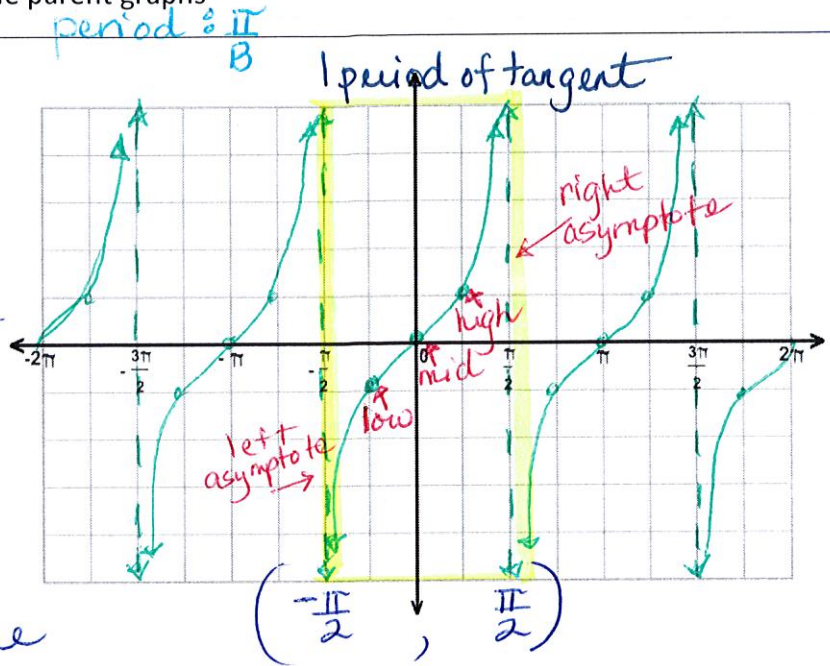 parent graphs
period : π/B
1 period of tangent
right
asymptote
high
mid
low
left
asymptote
-2π
-3π/2
-π
-π/2
0
π/2
π
3π/2
2π
(-π/2 , π/2)